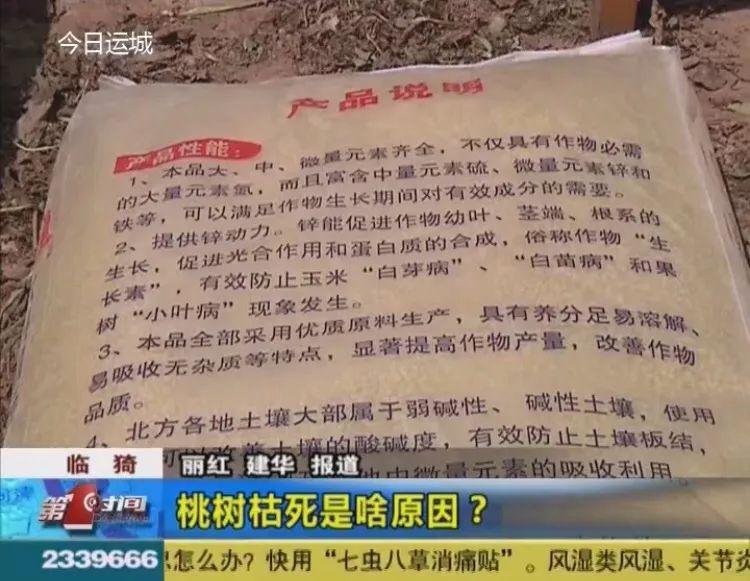 今日运城
产品说明
产品性能：
1、本品大、中、微量元素齐全，不仅具有作物必需
的大量元素氮，而且富含中量元素硫、微量元素锌和
铁等，可以满足作物生长期间对有效成分的需要。
2、提供锌动力。锌能促进作物幼叶、茎端、根系的
生长，促进光合作用和蛋白质的合成，俗称作物“生
长素”，有效防止玉米“白芽病”、“白苗病”和果
树“小叶病”现象发生。
3、本品全部采用优质原料生产，具有养分足易溶解、
易吸收无杂质等特点，显著提高作物产量，改善作物
品质。
4、北方各地土壤大部属于弱碱性、碱性土壤，使用
土壤的酸碱度，有效防止土壤板结，
中微量元素的吸收利用。
临猗 丽红 建华 报道
第1时间
桃树枯死是啥原因？
2339666 怎么办？快用“七虫八草消痛贴”。风湿类风湿、关节炎